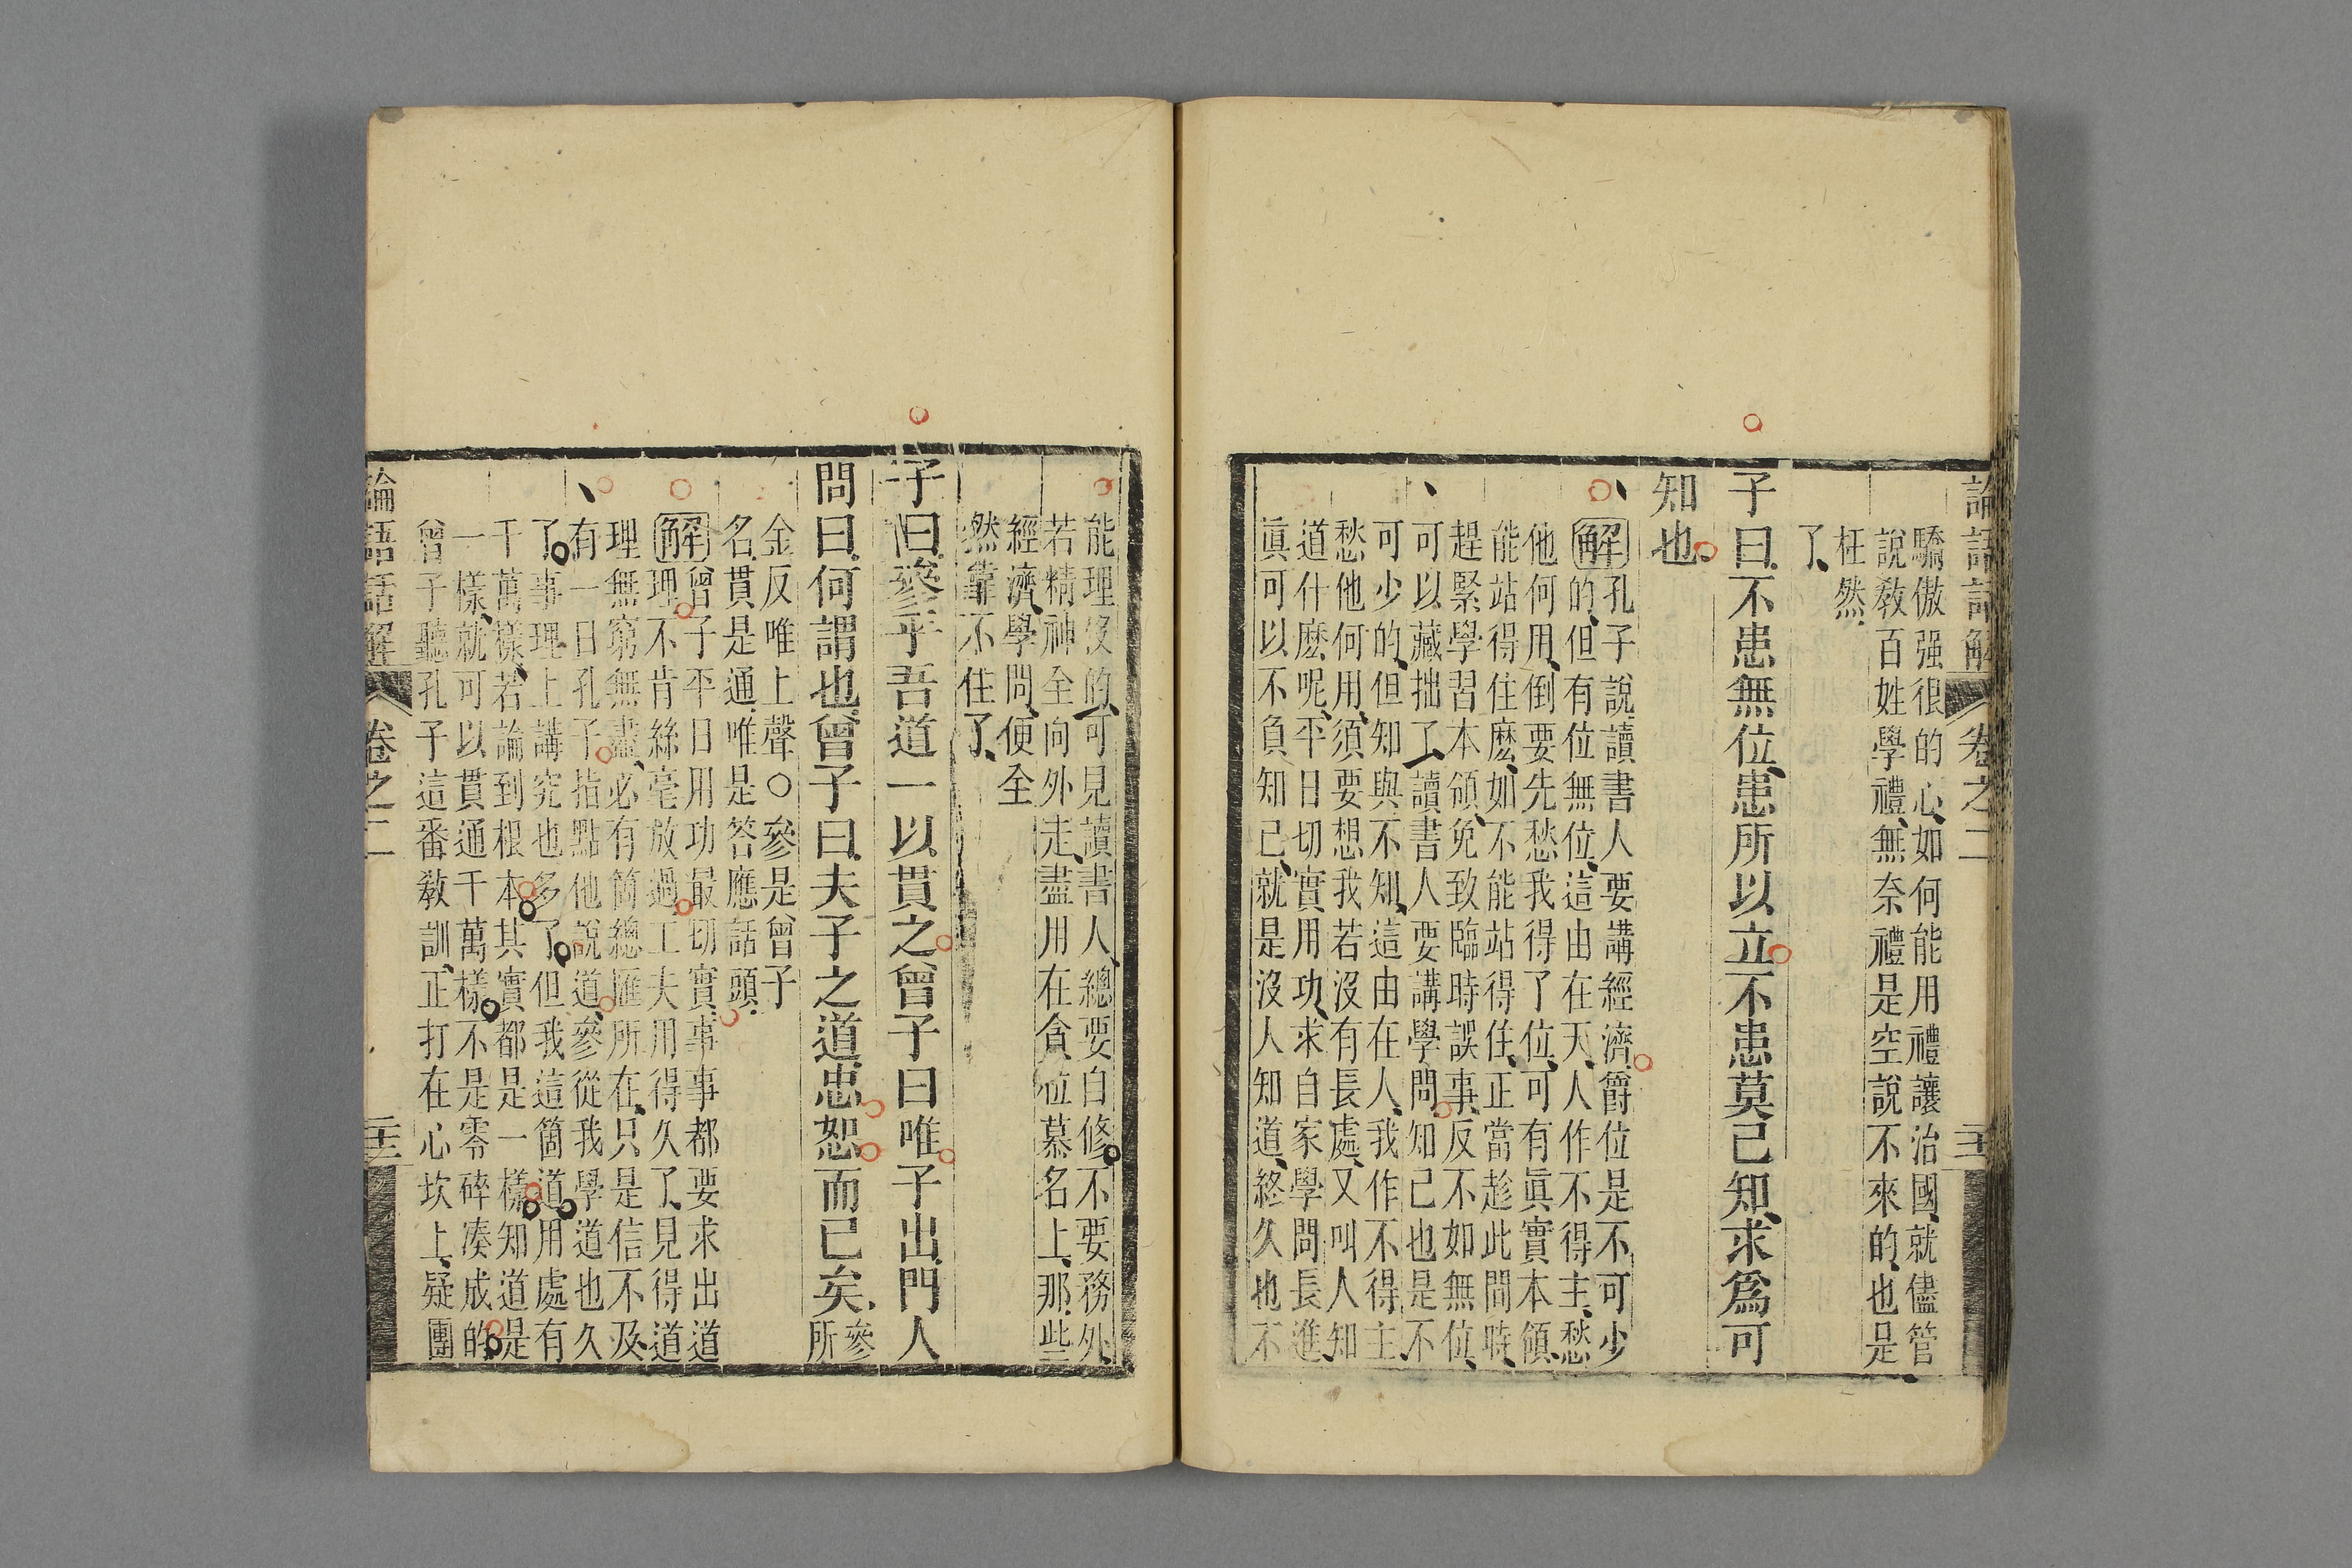 論語話解 卷之二 二十二
驕傲强很的心、如何能用禮讓治國、就儘管
說敎百姓學禮、無奈禮是空說不來的、也是
枉然、
了、
子曰、不患無位、患所以立、不患莫己知、求爲可
知也、
解孔子說、讀書人要講經濟、爵位是不可少
的、但有位無位、這由在天、人作不得主、愁
他何用、倒要先愁我得了位、可有眞實本領、
能站得住麽、如不能站得住、正當趁此閒時、
趕緊學習本領、免致臨時誤事、反不如無位、
可以藏拙了、讀書人要講學問、知己也是不
可少的、但知與不知、這由在人、我作不得主、
愁他何用、須要想我若沒有長處、又叫人知
道什麽呢、平日切實用功、求自家學問長進、
眞可以不負知己、就是沒人知道、終久也不
能理沒的、可見讀書人、總要自修、不要務外、
若精神全向外走、盡用在貪位慕名上、那些
經濟學問、便全
然靠不住了、
子曰、參乎、吾道一以貫之、曾子曰唯、子出、門人
問曰、何謂也、曾子曰、夫子之道、忠恕而已矣、參所
金反唯上聲○參是曾子
名、貫是通、唯是答應話頭、
解曾子平日用功最切實、事事都要求出道
理、不肯絲毫放過、工夫用得久了、見得道
理無窮無盡、必有箇總滙所在、只是信不及、
有一日孔子指點他說道、參從我學道也久
了、事理上講究也多了、但我這箇道、用處有
千萬樣、若論到根本、其實都是一樣、知道是
一樣、就可以貫通千萬樣、不是零碎湊成的、
曾子聽孔子這番敎訓、正打在心坎上、疑團
論語話解 卷之二